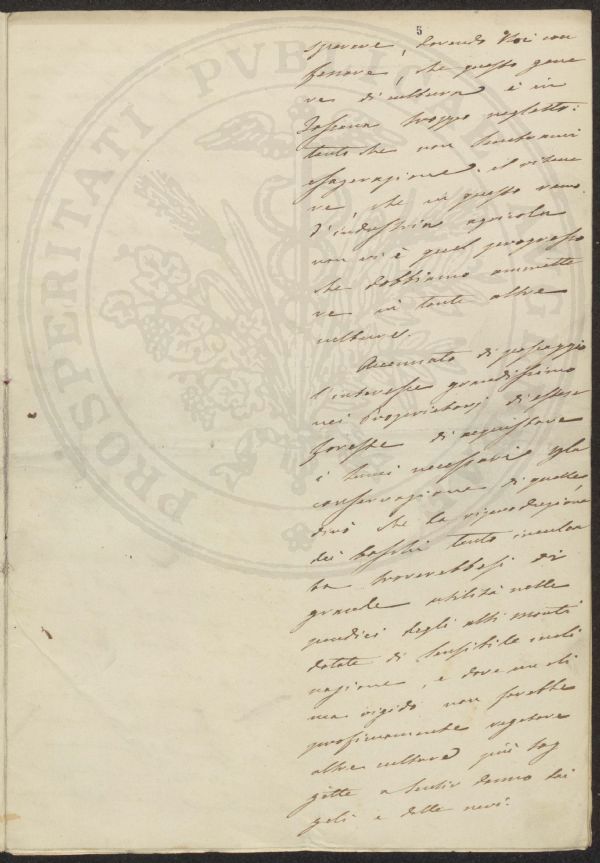 5
sperare, dovendo Noi con
fessare, che questo gene
re di cultura è in
Toscana troppo neglotto:
tanto che non
esagerazione il ritene
re, che in questo ramo
d'industria agricola
non vi è quel progresso
che dobbiamo ammette
re in tante altre
culture.
Accennato di passaggio
l'interesse grandissimo
nei Proprietarj di estese
foreste di acquistare
i lumi necessarj p la
conservazione di quelle
dirò che la riproduzione
dei boschi tanto inculca
ta troverebbesi di
grande utilità nelle
pendici degli alti monti
dotate di sensibile incli
nazione, e dove un cli
ma rigido non farebbe
vegetare
altre culture più sog
gette a sentir danno dai
geli e dalle nevi.
PROSPERITATI PVBLICAE AVGENDAE